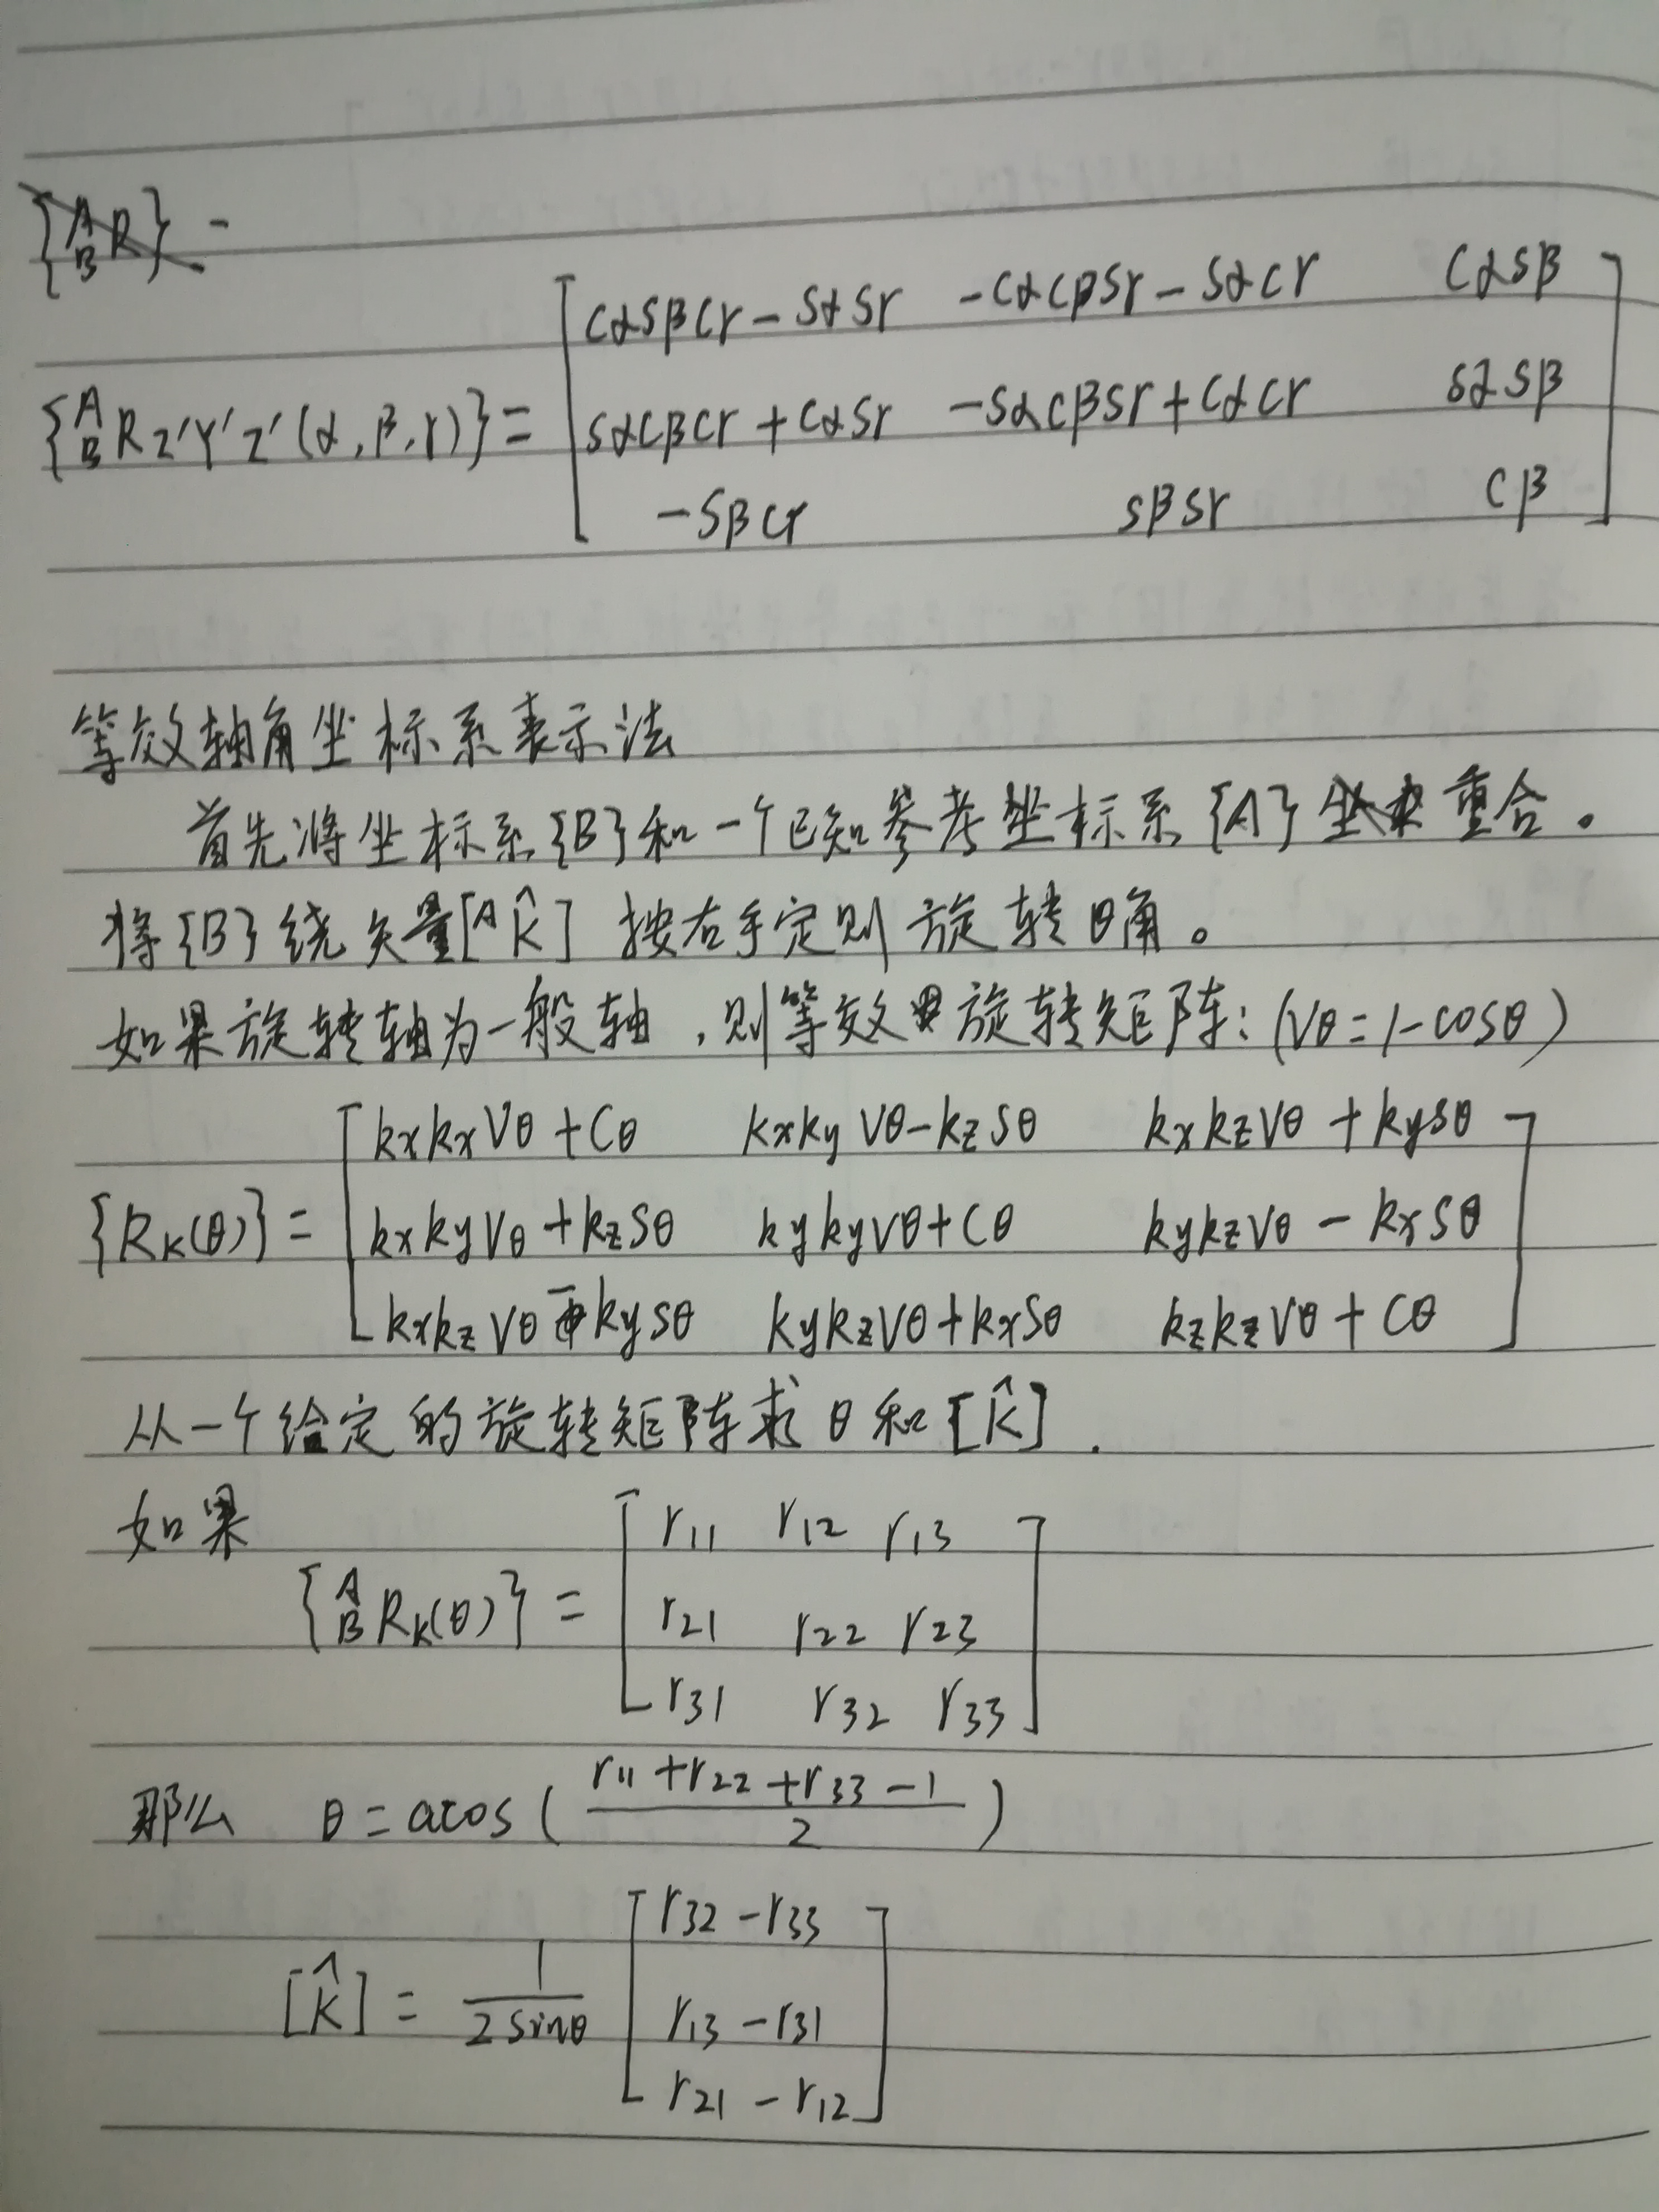 {ᴬ_B R} =
{ᴬ_B R z'Y'z'(α,β,γ)} = [ cαsβcγ - sαsγ  -cαcβsγ - sαcγ  cαsβ
sαcβcγ + cαsγ  -sαcβsγ + cαcγ  sαsβ
-sβcγ  sβsγ  cβ ]
等效轴角坐标系表示法
首先将坐标系{B}和一个已知参考坐标系{A}重合。
将{B}绕矢量[ᴬK̂]按右手定则旋转θ角。
如果旋转轴为一般轴,则等效旋转矩阵:(vθ=1-cosθ)
{R_K(θ)} = [ kxkxvθ+cθ  kxkyvθ-kzsθ  kxkzvθ+kysθ
kxkyvθ+kzsθ  kykyvθ+cθ  kykzvθ-kxsθ
kxkzvθ-kysθ  kykzvθ+kxsθ  kzkzvθ+cθ ]
从一个给定的旋转矩阵求θ和[K̂].
如果
{ᴬ_B R_K(θ)} = [ r11 r12 r13
r21 r22 r23
r31 r32 r33 ]
那么 θ=acos( (r11+r22+r33-1)/2 )
[K̂] = 1/(2sinθ) [ r32-r33
r13-r31
r21-r12 ]